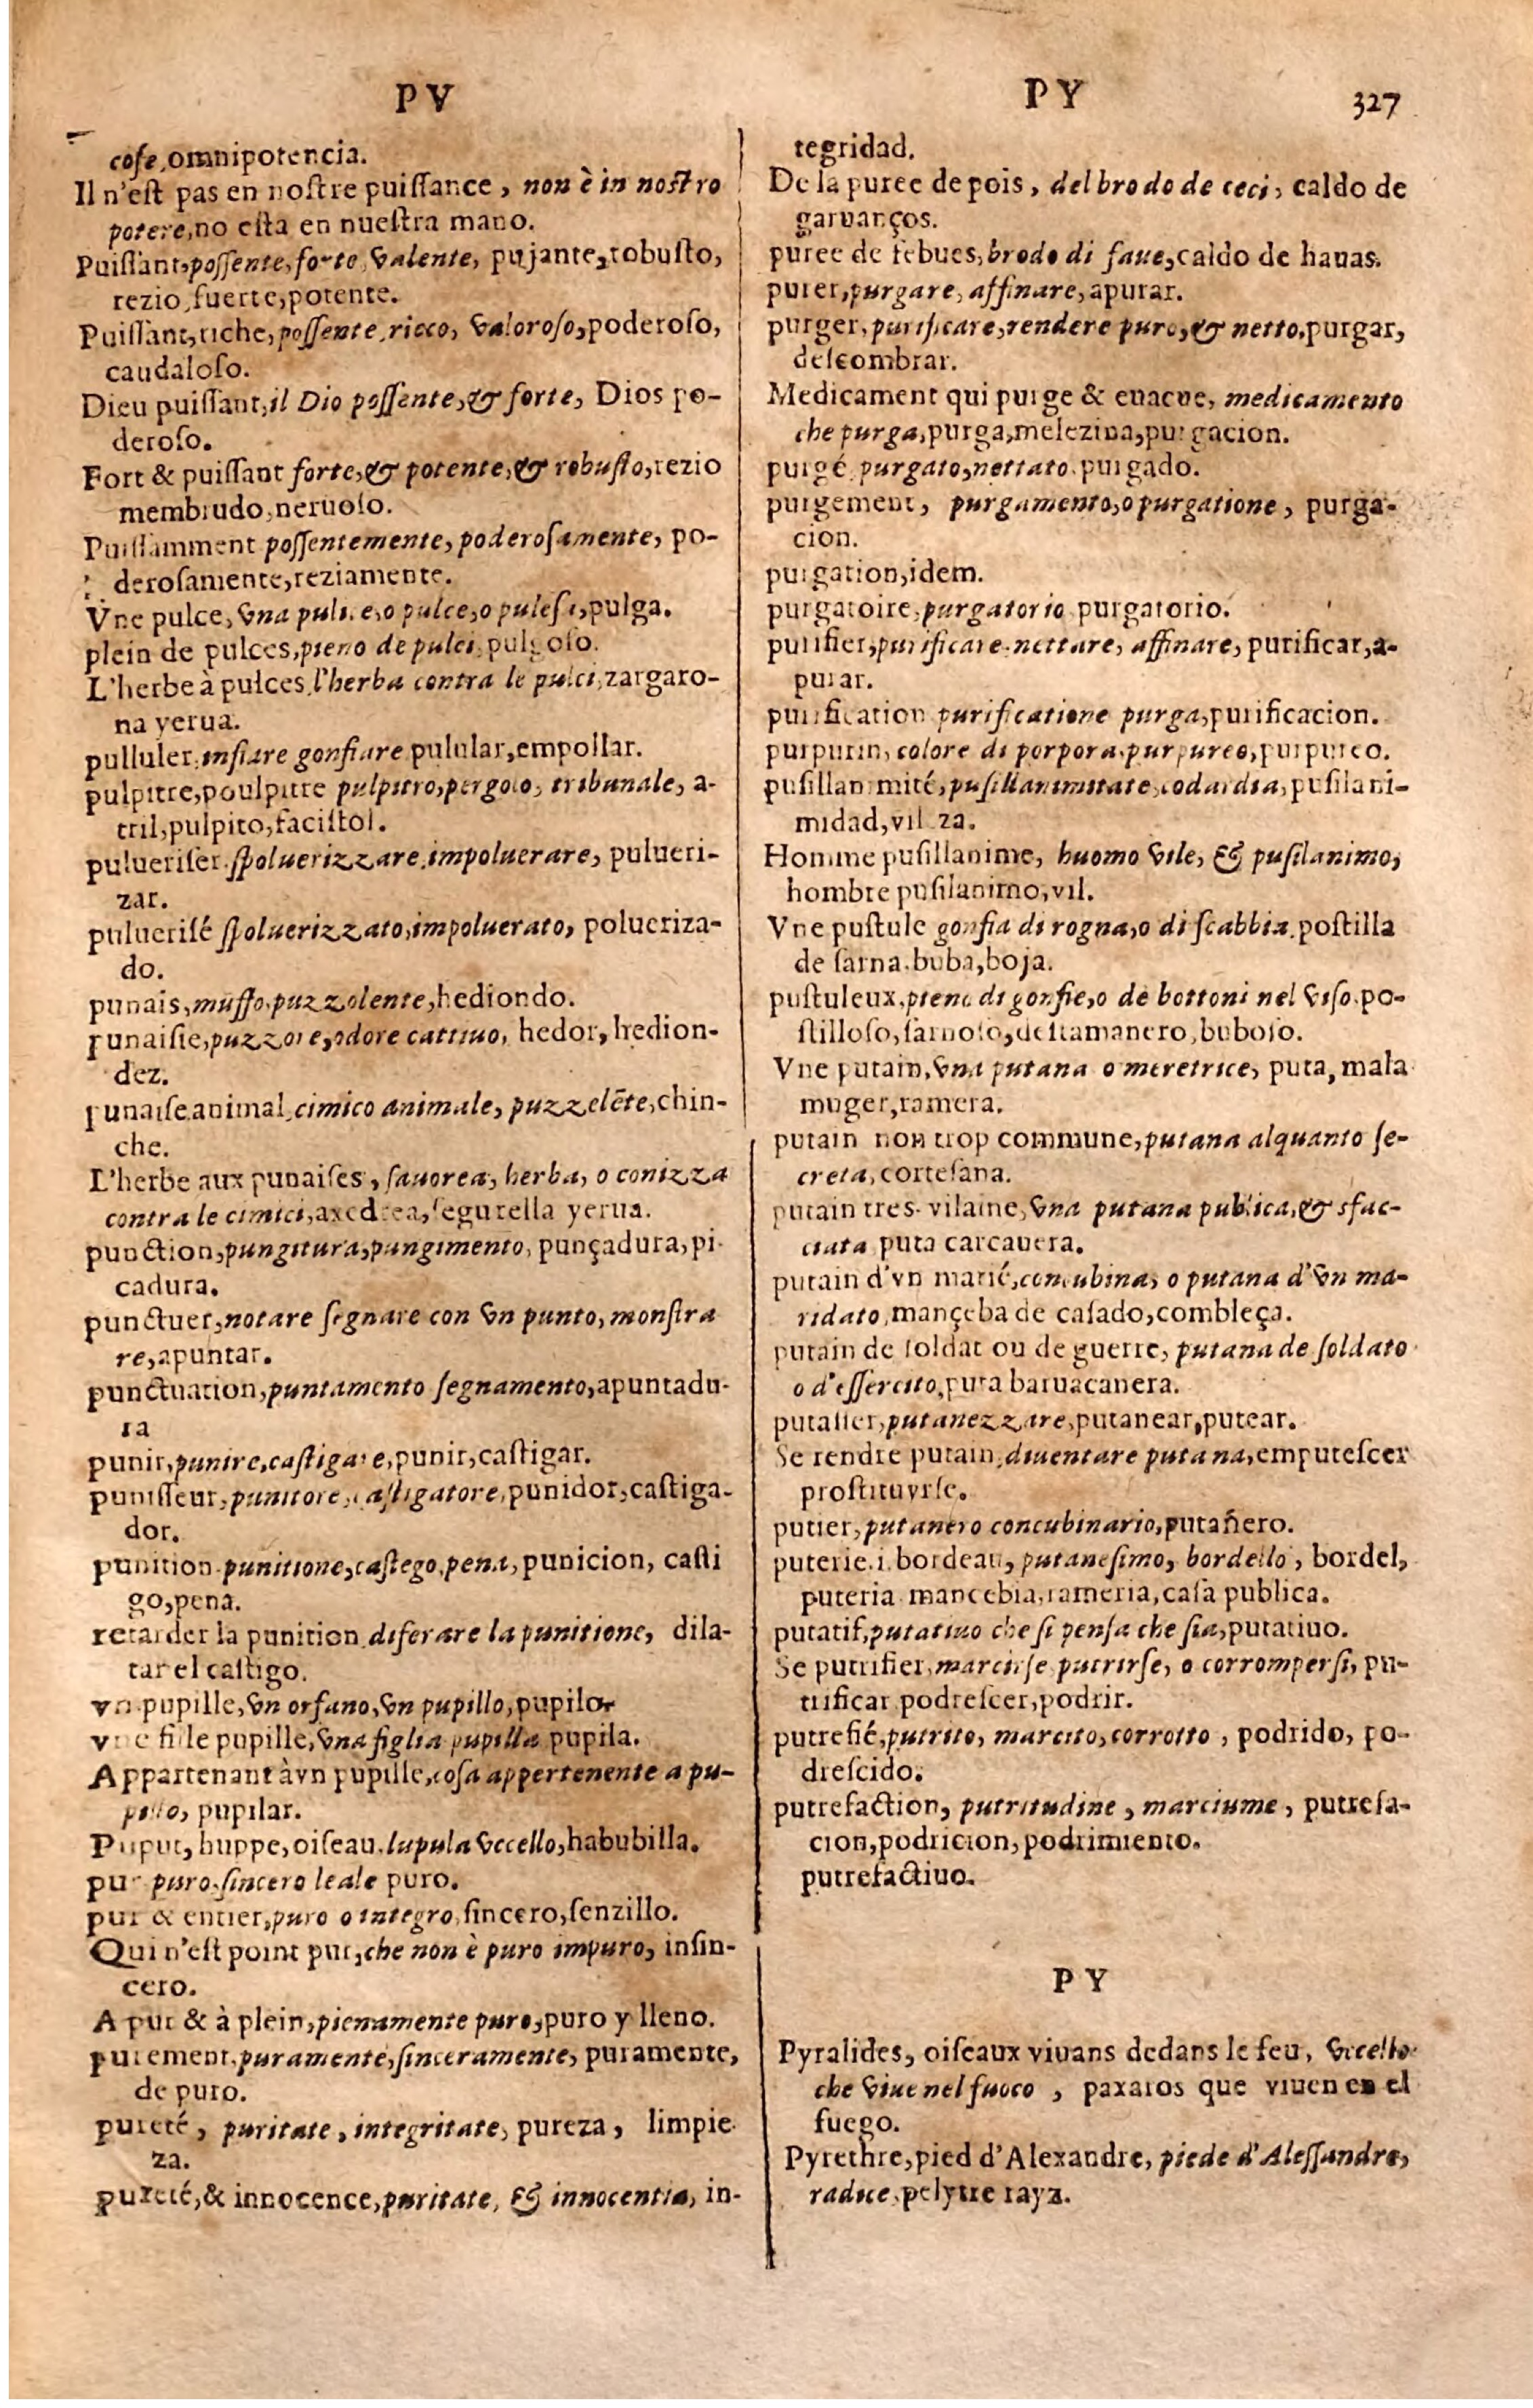 PV
PY
327
cose, omnipotencia.
Il n'est pas en nostre puissance, non è in nostro
potere, no esta en nuestra mano.
Puissant, possente, forte, valente, pujante, robusto,
rezio, fuerte, potente.
Puissant, riche, possente, ricco, valoroso, poderoso,
caudaloso.
Dieu puissant, il Dio possente, & forte, Dios po-
deroso.
Fort & puissant forte, & potente, & robusto, rezio
membrudo, neruoso.
Puissamment possentemente, poderosamente, po-
derosamente, reziamente.
Vne pulce, vna pulice, o pulce, o pulesi, pulga.
plein de pulces, pieno de pulci, pulgoso.
L'herbe à pulces, l'herba contra le pulci, zargaro-
na yerua.
pulluler, infiare gonfiare pulular, empollar.
pulpitre, poulpitre pulpitro, pergolo, tribunale, a-
tril, pulpito, facistol.
pulueriser. spoluerizzare, impoluerare, pulueri-
zar.
puluerisé spoluerizzato, impoluerato, polueriza-
do.
punais, muffo, puzzolente, hediondo.
punaisie, puzzore, odore cattiuo, hedor, hedion-
dez.
punaise animal, cimico animale, puzzelẽte, chin-
che.
L'herbe aux punaises, sauorea, herba, o conizza
contra le cimici, axedrea, segurella yerua.
punction, pungitura, pungimento, punçadura, pi-
cadura.
punctuer, notare segnare con vn punto, monstra
re, apuntar.
punctuation, puntamento segnamento, apuntadu-
ra
punir, punire, castigare, punir, castigar.
punisseur, punitore, castigatore, punidor, castiga-
dor.
punition punitione, castego, pena, punicion, casti
go, pena.
retarder la punition diferare la punitione, dila-
tar el castigo.
vn pupille, vn orfano, vn pupillo, pupilo.
vne fille pupille, vna figlia pupilla pupila.
Appartenant à vn pupille, cosa appertenente a pu-
pillo, pupilar.
Puput, huppe, oiseau, lupula vccello, habubilla.
pur puro, sincero leale puro.
pur & entier, puro o integro, sincero, senzillo.
Qui n'est point pur, che non è puro impuro, insin-
cero.
A pur & à plein, pienamente puro, puro y lleno.
purement, puramente, sinceramente, puramente,
de puro.
pureté, puritate, integritate, pureza, limpie-
za.
pureté, & innocence, puritate, & innocentia, in-
tegridad.
De la puree de pois, del brodo de ceci, caldo de
garuanços.
puree de febues, brodo di faue, caldo de hauas.
purer, purgare, affinare, apurar.
purger, purificare, rendere puro, & netto, purgar,
descombrar.
Medicament qui purge & euacue, medicamento
che purga, purga, melezina, purgacion.
purgé purgato, nettato purgado.
purgement, purgamento, o purgatione, purga-
cion.
purgation, idem.
purgatoire, purgatorio purgatorio.
purifier, purificare, nettare, affinare, purificar, a-
purar.
purification purificatione purga, purificacion.
purpurin, colore di porpora, purpureo, purpureo.
pusillanimité, pusillanimitate, codardia, pusilani-
midad, vileza.
Homme pusillanime, huomo vile, & pusilanimo,
hombre pusilanimo, vil.
Vne pustule gonfia di rogna, o di scabbia, postilla
de sarna, buba, boja.
pustuleux, pieno di gonfie, o de bottoni nel viso, po-
stilloso, sarnoso, destamanero, buboso.
Vne putain, vna putana o meretrice, puta, mala
muger, ramera.
putain non trop commune, putana alquanto se-
creta, cortesana.
putain tres-vilaine, vna putana publica, & sfac-
ciata puta carcauera.
putain d'vn marié, concubina, o putana d'vn ma-
ridato, mançeba de casado, combleça.
putain de soldat ou de guerre, putana de soldato
o d'essercito, puta baruacanera.
putasser, putanezzare, putanear, putear.
Se rendre putain, diuentare putana, emputescer
prostituyrse.
putier, putanero concubinario, putañero.
puterie. i. bordeau, putanesimo, bordello, bordel,
puteria mancebia, rameria, casa publica.
putatif, putatiuo che si pensa che sia, putatiuo.
Se putrifier, marcirse putrirse, o corrompersi, pu-
trificar podrescer, podrir.
putrefié, putrito, marcito, corrotto, podrido, po-
drescido.
putrefaction, putritudine, marciume, putrefa-
cion, podricion, podrimiento.
putrefactiuo.
PY
Pyralides, oiseaux viuans dedans le feu, vccello
che viue nel fuoco, paxaros que viuen en el
fuego.
Pyrethre, pied d'Alexandre, piede d'Alessandro,
radice, pelytre rayz.